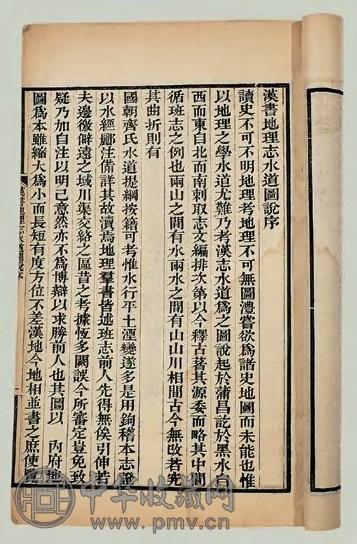 漢書地理志水道圖說序
讀史不可不明地理考地理不可無圖澧嘗欲為諸史地圖而未能也惟
以地理之學水道尤難乃考漢志水道為之圖說起於蒲昌訖於黑水自
西而東自北而南刺取志文編排次第以今釋古著其源委而略其中間
循班志之例也兩山之間有水兩水之間有山山川相間古今無改若究
其曲折則有
國朝齊氏水道提綱按籍可考惟水行平土湮變遂多是用鉤稽本志
以水經酈注備詳其故瀆焉地理羣書皆述班志前人先得無俟引伸若
夫邊徼僻遠之域川渠交絡之區昔之考據恆多闕誤今所審定豈免致
疑乃加自注以明己意然亦不為博辯以求勝前人也其圖以 內府地
圖為本雖縮大為小而長短有度方位不差漢地今地相並書之庶使
中华收藏网
www.pmv.cn